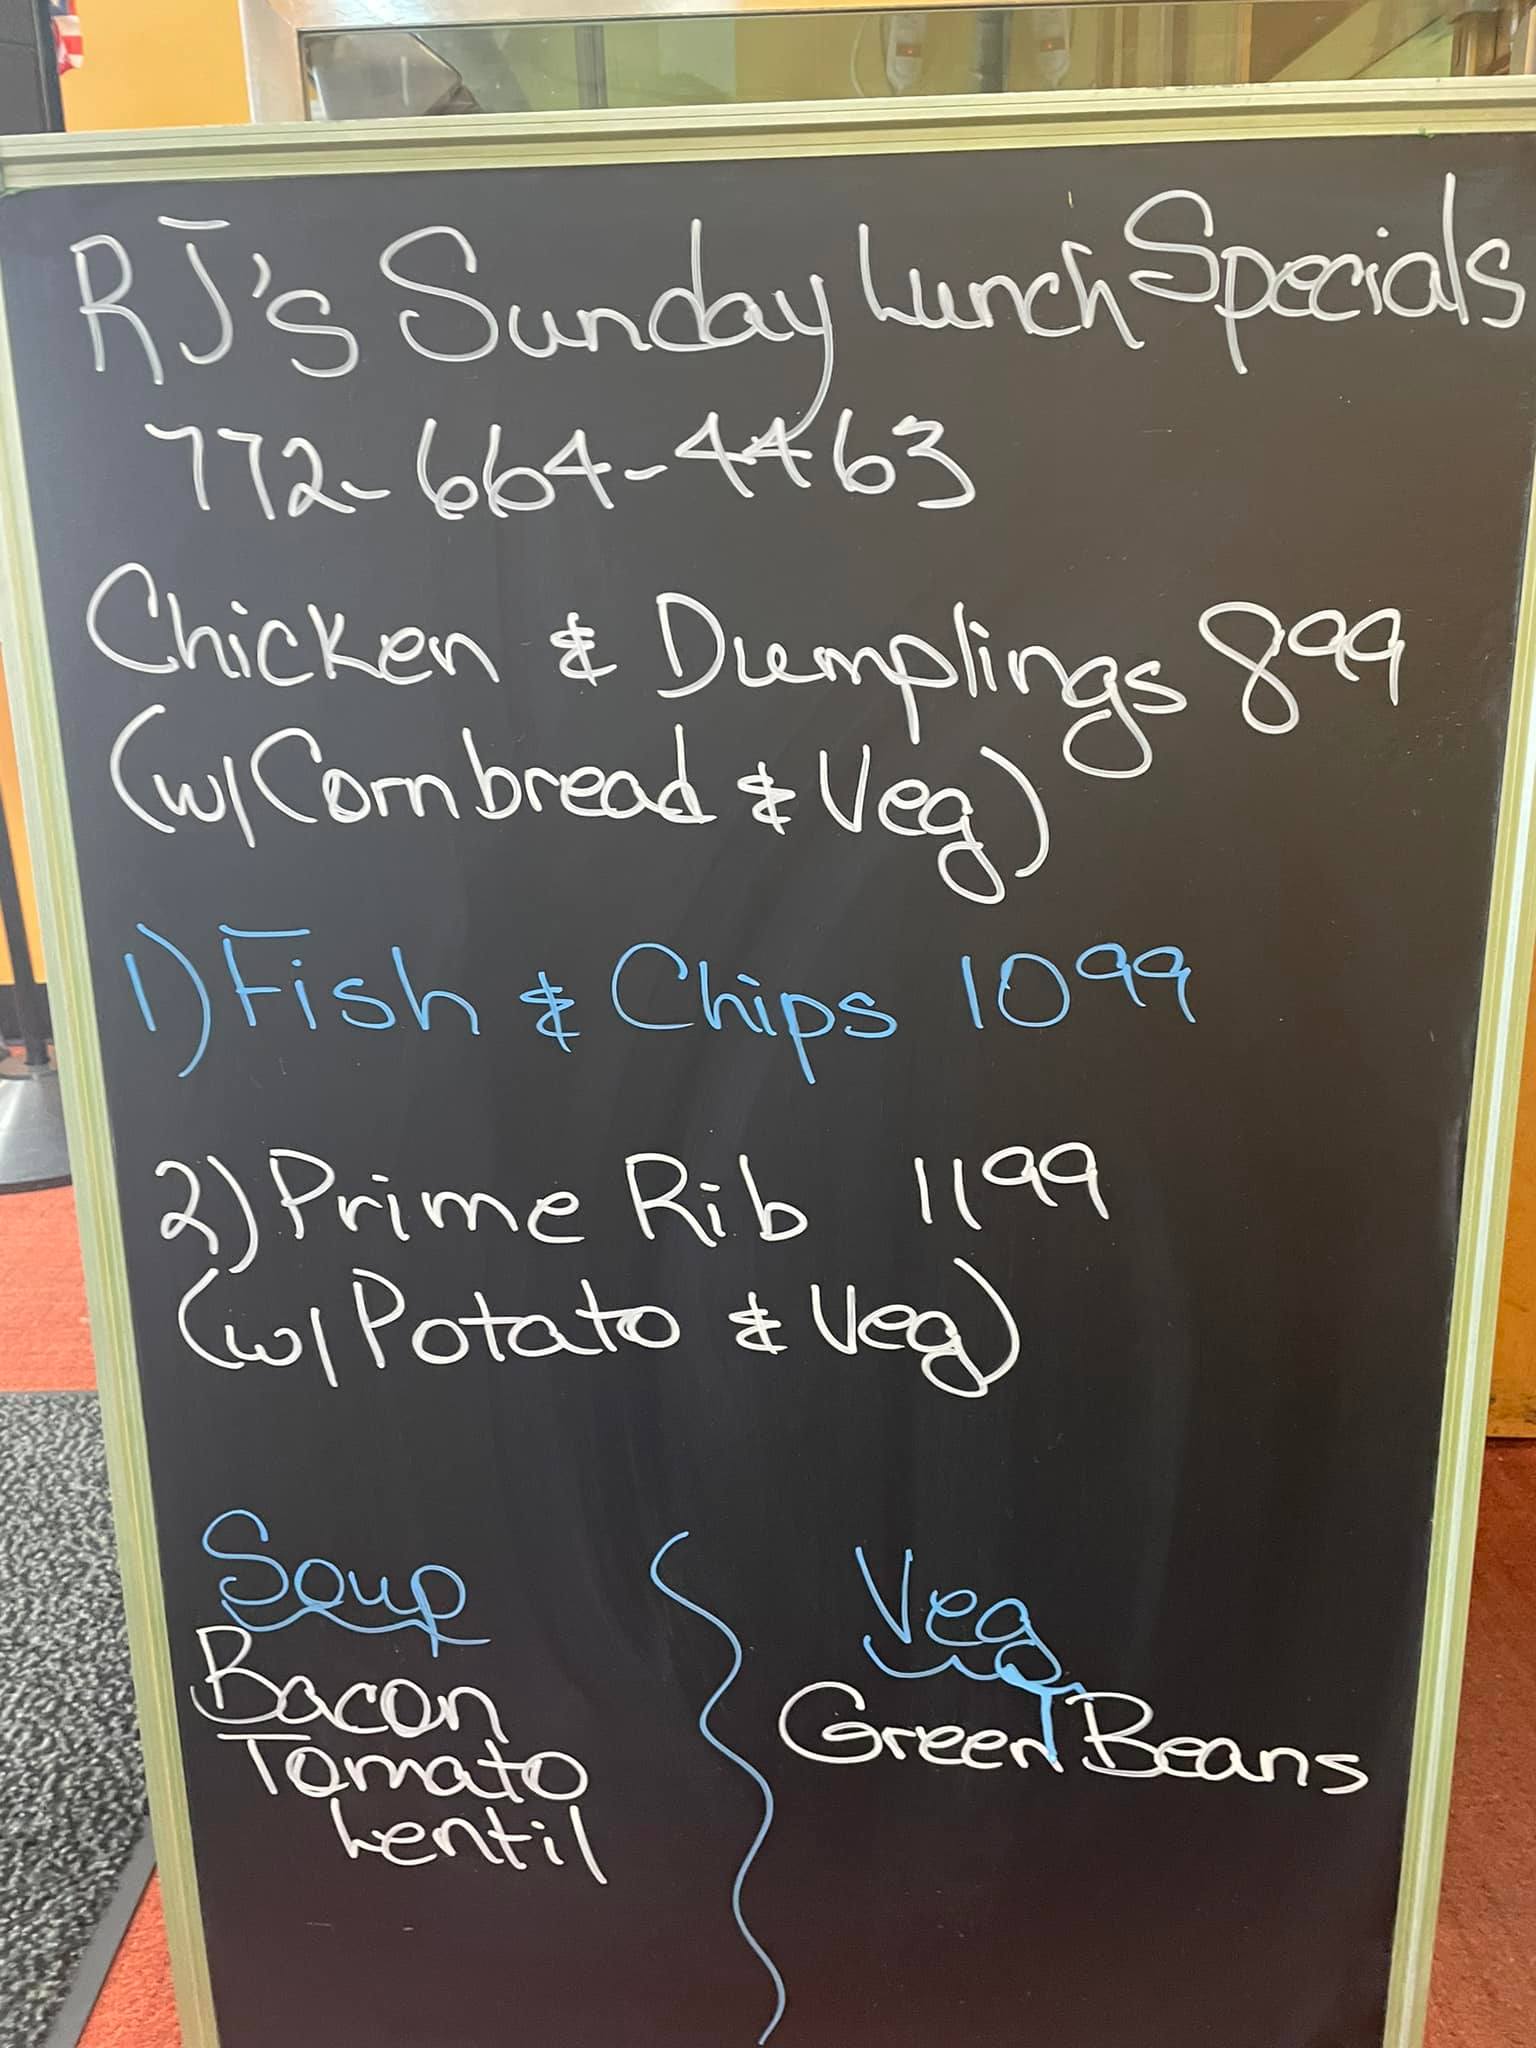 RJ's Sunday Lunch Specials
772-664-4463
Chicken & Dumplings 8.99
(w/Cornbread & Veg)
1) Fish & Chips 10.99
2) Prime Rib 11.99
(w/Potato & Veg)
Soup
Bacon
Tomato
Lentil
Veg
Green Beans